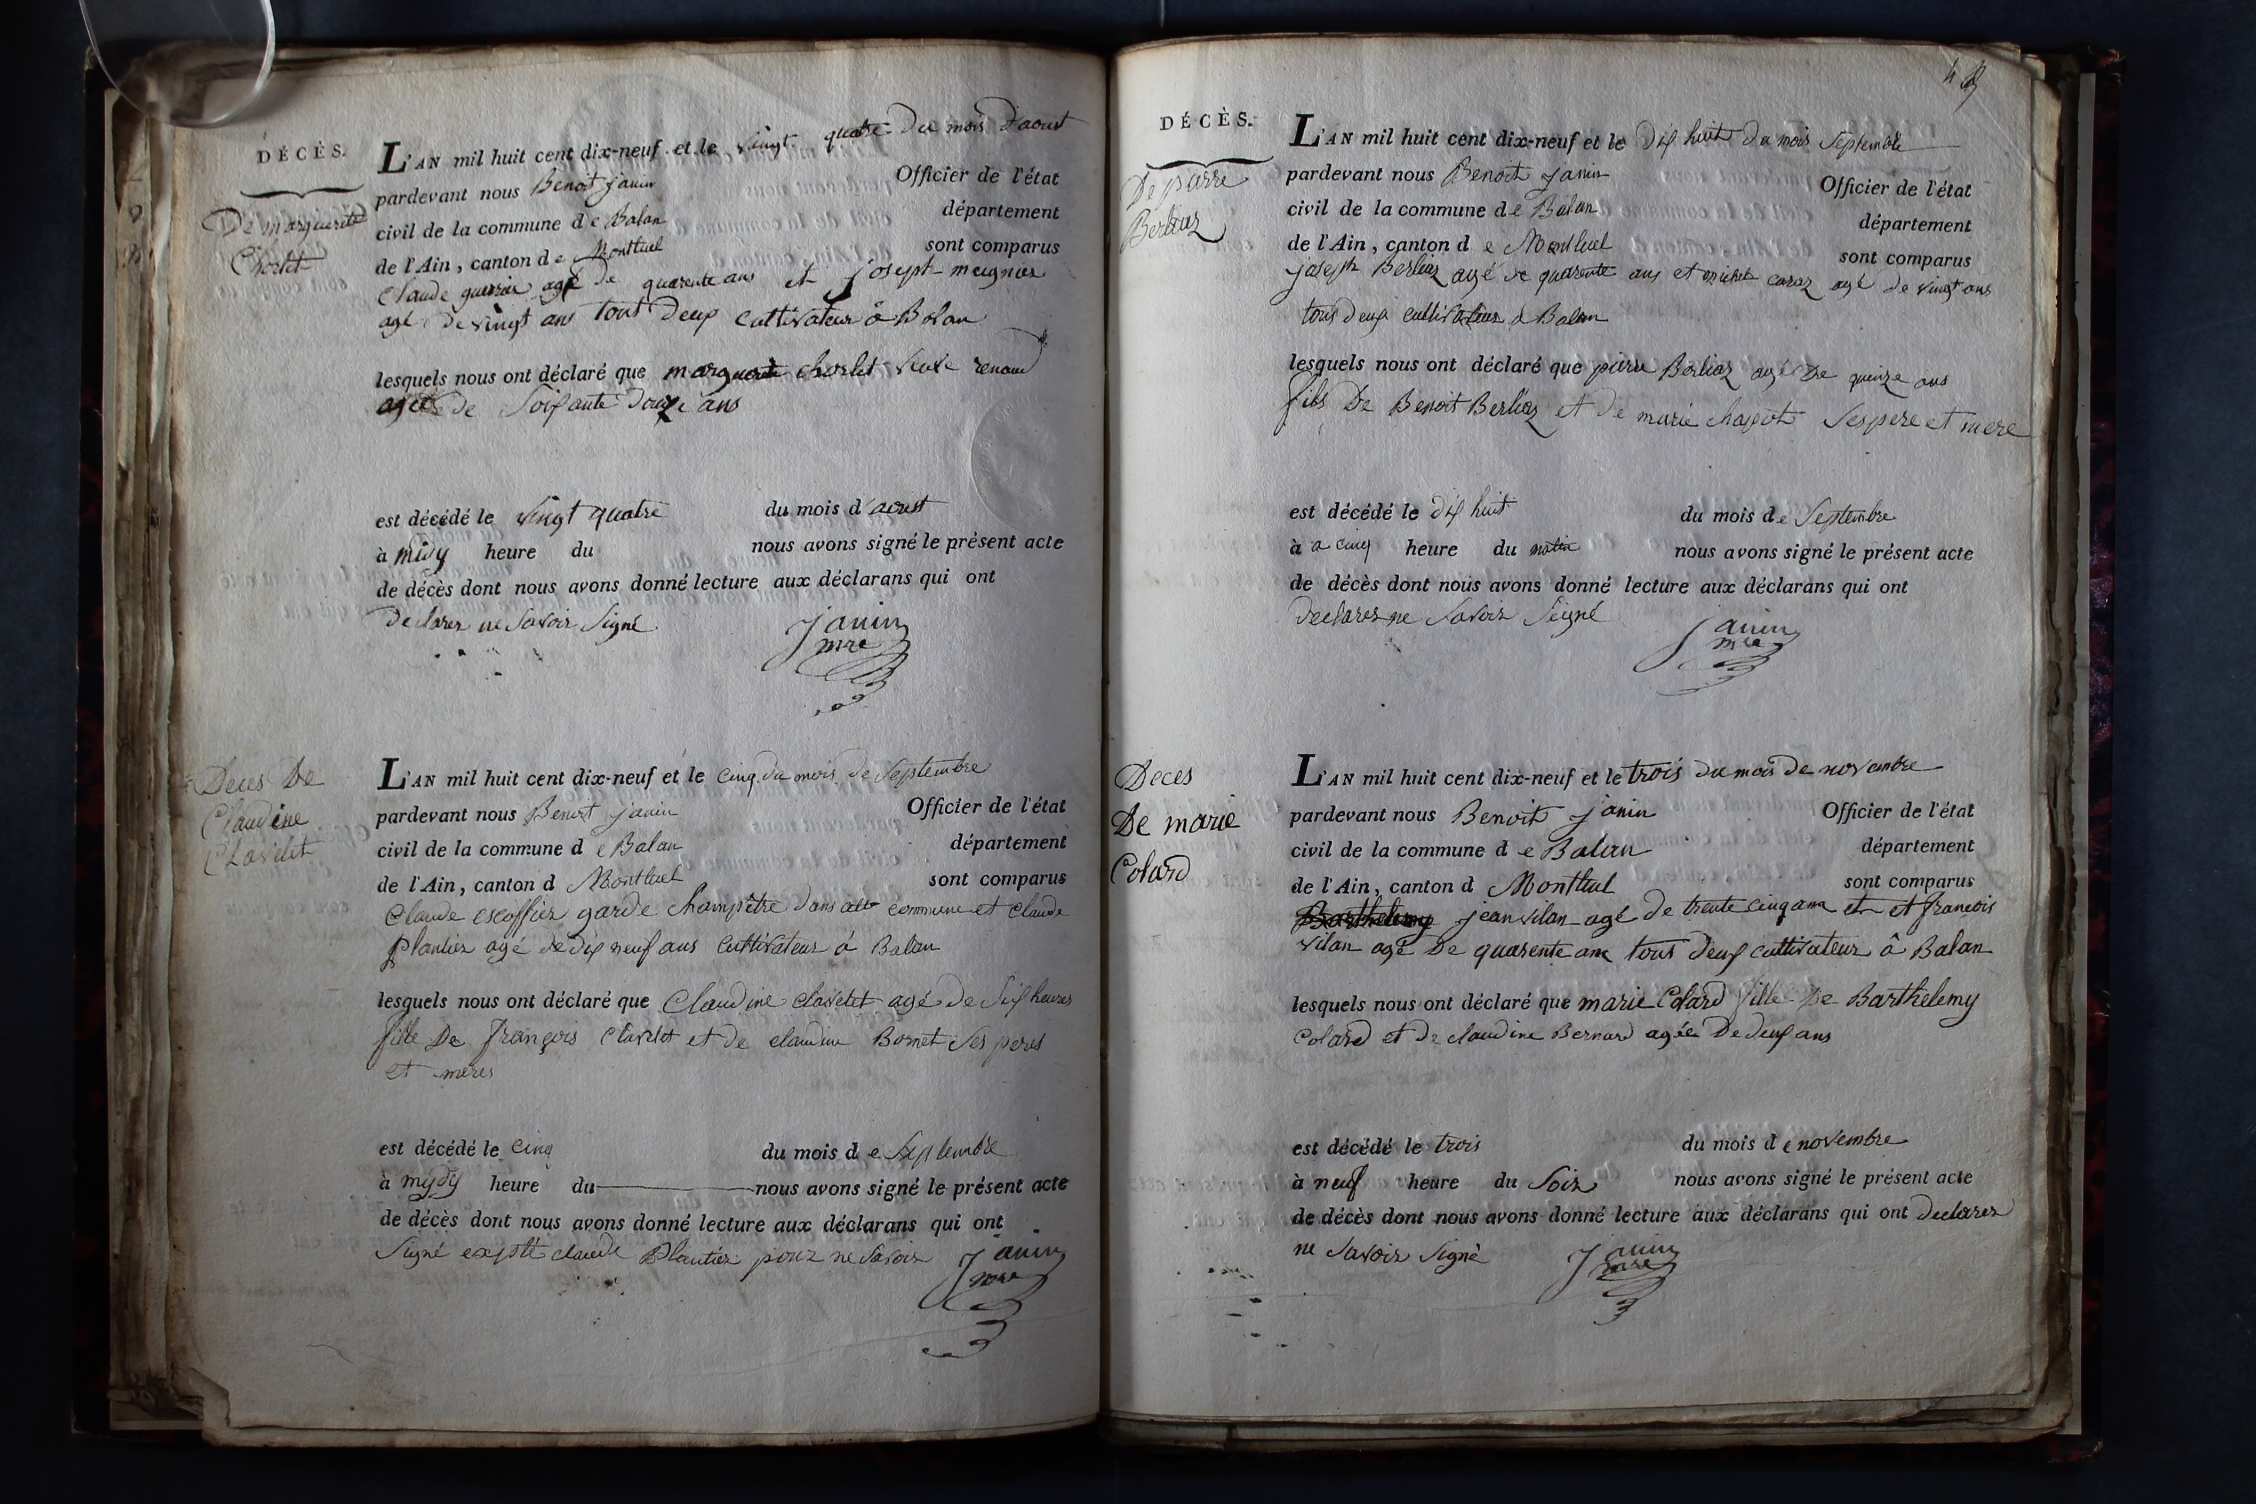 DÉCÈS.
De marguerite
Chorlet
L'AN mil huit cent dix-neuf et le vingt quatre du mois d'aoust
pardevant nous Benoit janin Officier de l'état
civil de la commune de Balan département
de l'Ain, canton de Montluel sont comparus
Claude guerrier agé de quarente ans et joseph meignier
agé de vingt ans tout deux cultivateur â Balan
lesquels nous ont déclaré que marguerite chorlet veuve renaud
agée de Soixante douze ans
est décédé le vingt quatre du mois d'aoust
à midy heure du nous avons signé le présent acte
de décès dont nous avons donné lecture aux déclarans qui ont
declarer ne Savoir Signé
janin
mre
Deces De
Claudine
Clavelet
L'AN mil huit cent dix-neuf et le cinq du mois de Septembre
pardevant nous Benoit janin Officier de l'état
civil de la commune de Balan département
de l'Ain, canton d Montluel sont comparus
Claude escoffier garde champêtre dans commune et Claude
Plantier agé de dix neuf ans Cultivateur â Balan
lesquels nous ont déclaré que Claudine clavelet agé de Six heures
fille De françois Clavelet et de claudine Bornet Ses peres
et meres
est décédé le cinq du mois de Septembre
à mydy heure du nous avons signé le présent acte
de décès dont nous avons donné lecture aux déclarans qui ont
Signé exepté claude Plantier pour ne Savoir
janin
mre
49
DÉCÈS.
De pierre
Berliaz
L'AN mil huit cent dix-neuf et le dix huit du mois Septembre
pardevant nous Benoit janin Officier de l'état
civil de la commune de Balan département
de l'Ain, canton de Montluel sont comparus
joseph Berliaz agé de quarente ans et michel caraz agé de vingt ans
tous deux cultivateur a Balan
lesquels nous ont déclaré que pierre Berliaz agé De quinze ans
fils De Benoit Berliaz et de marie chapot Ses pere et mere
est décédé le dix huit du mois de Septembre
à a cinq heure du matin nous avons signé le présent acte
de décès dont nous avons donné lecture aux déclarans qui ont
declarer ne Savoir Seigné
janin
mre
Deces
De marie
Colard
L'AN mil huit cent dix-neuf et le trois du mois de novembre
pardevant nous Benoit janin Officier de l'état
civil de la commune de Balan département
de l'Ain, canton d Montluel sont comparus
Barthelemy jean vilan agé de trente cinq ans et et francois
vilan agé De quarente ans tous deux cultivateur â Balan
lesquels nous ont déclaré que marie Colard fille De Barthelemy
Colard et De claudine Bernard agée De deux ans
est décédé le trois du mois de novembre
à neuf heure du Soir nous avons signé le présent acte
de décès dont nous avons donné lecture aux déclarans qui ont declarer
ne Savoir Signé
janin
mre